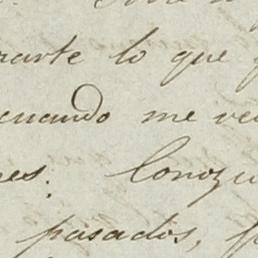 rarte lo que
cuando me ve
es. Conozc
pasados,